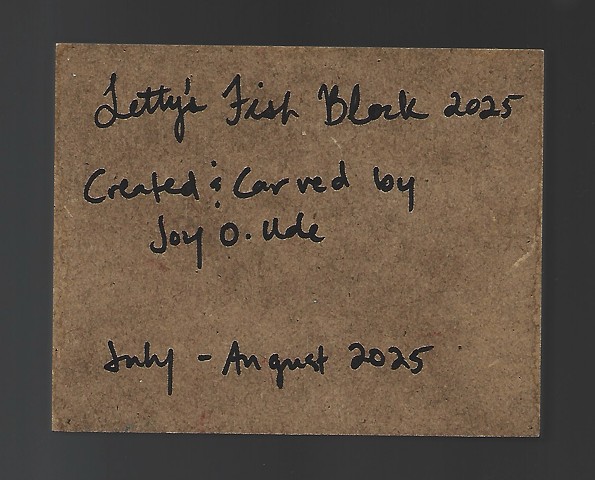 Letty's Fish Block 2025
Created & Carved by
Joy O. Ude
July - August 2025